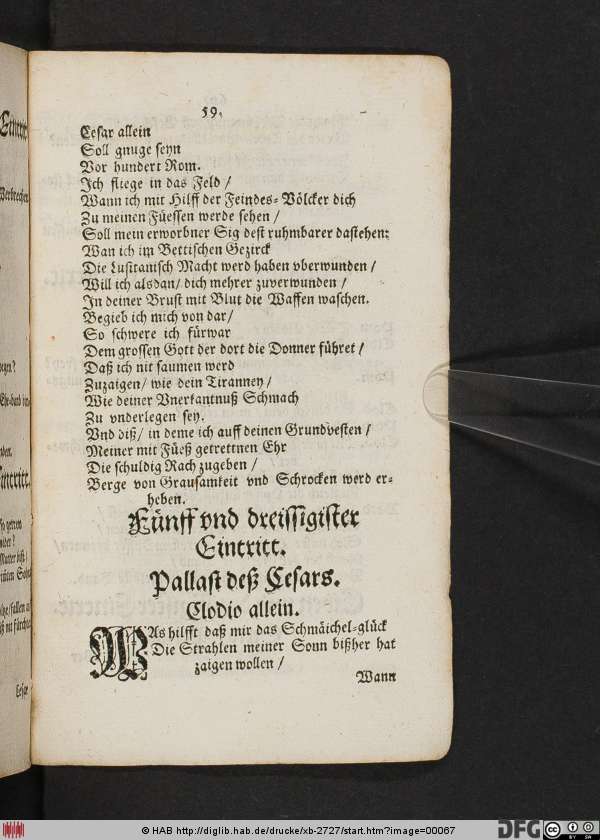 59.
Cesar allein
Soll gnuge seyn
Vor hundert Rom.
Ich fliege in das Feld /
Wann ich mit Hilff der Feindes-Völcker dich
Zu meinen Füessen werde sehen /
Soll mein erworbner Sig dest ruhmbarer dastehen:
Wan ich im Bettischen Gezirck
Die Lusitanisch Macht werd haben vberwunden /
Will ich alsdan / dich mehrer zuverwunden /
In deiner Brust mit Blut die Waffen waschen.
Begieb ich mich von dar /
So schwere ich fürwar
Dem grossen Gott der dort die Donner führet /
Daß ich nit saumen werd
Zuzaigen / wie dein Tiranney /
Wie deiner Vnerkantnuß Schmach
Zu vnderlegen sey.
Vnd diß / in deme ich auff deinen Grundvesten /
Meiner mit Füeß getrettnen Ehr
Die schuldig Rach zugeben /
Berge von Grausamkeit vnd Schrocken werd er-
heben.
Fünff vnd dreissigister
Eintritt.
Pallast deß Cesars.
Clodio allein.
WAs hilfft daß mir das Schmäichel-glück
Die Strahlen meiner Sonn bißher hat
zaigen wollen /
Wann
© HAB http://diglib.hab.de/drucke/xb-2727/start.htm?image=00067
DFG
CC BY SA